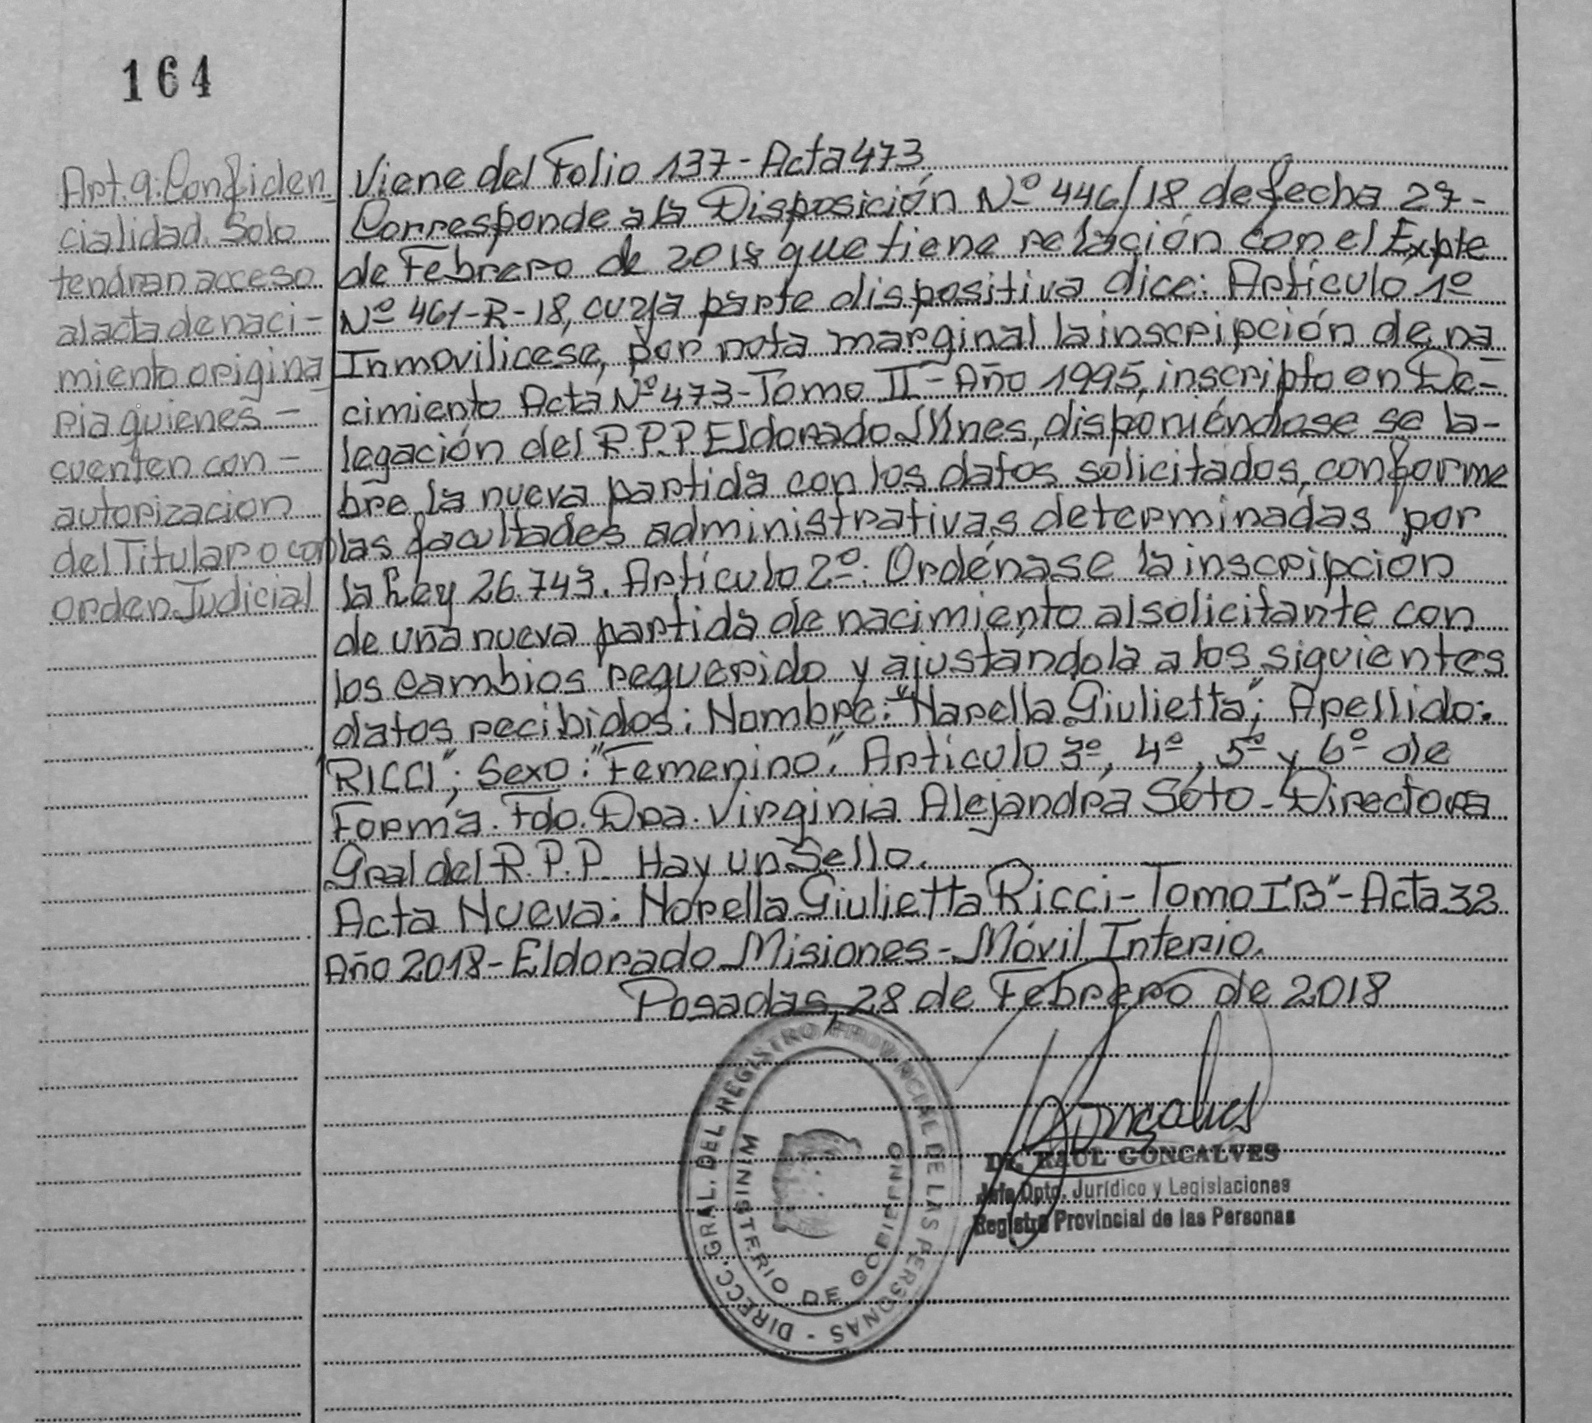 164
Art. 9: Confiden
cialidad. Solo
tendran acceso
al acta de naci-
miento origina
ria quienes -
cuenten con -
autorizacion
del Titular o con
orden Judicial
Viene del Folio 137 - Acta 473
Corresponde a la Disposición Nº 446/18 de fecha 27-
de Febrero de 2018 que tiene relación con el Expte
Nº 461-R-18, cuya parte dispositiva dice: Artículo 1º
Inmovilicese, por nota marginal la inscripción de na
cimiento Acta Nº 473 - Tomo II - Año 1995, inscripto en De-
legación del R.P.P. Eldorado Mnes, disponiéndose se la-
bre la nueva partida con los datos solicitados, conforme
las facultades administrativas determinadas por
la Ley 26.743. Artículo 2º: Ordénase la inscripcion
de una nueva partida de nacimiento al solicitante con
los cambios requerido y ajustandola a los siguientes
datos recibidos: Nombre: "Narella Giulietta"; Apellido:
"RICCI"; Sexo: "Femenino". Artículo 3º, 4º, 5º y 6º de
Forma. Fdo. Dra. Virginia Alejandra Soto - Directora
Gral del R.P.P. Hay un Sello.
Acta Nueva: Norella Giulietta Ricci - Tomo I "B" - Acta 32
Año 2018 - Eldorado Misiones - Móvil Interio.
Posadas, 28 de Febrero de 2018
DIRECC. GRAL. DEL REGISTRO PROVINCIAL DE LAS PERSONAS -
MINISTERIO DE GOBIERNO
Goncalves
Dr. RAUL GONCALVES
Jefe Dpto. Jurídico y Legislaciones
Registro Provincial de las Personas